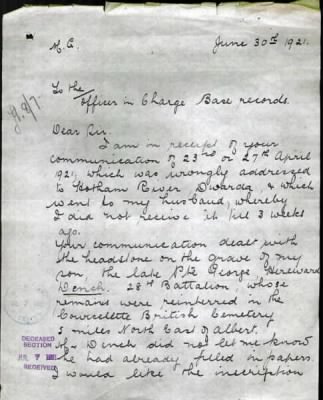 June 30th 1921.
To the
Officer in Charge Base records.
Dear Sir.
I am in receipt of your
communication of 23rd or 27th April
1921, which was wrongly addressed
to Hotham River Dwarda, & which
went to my husband, whereby
I did not receive it till 3 weeks
ago.
Your communication dealt with
the headstone on the grave of my
son, the late Pte George Hereward
Dench. 28th Battalion, whose
remains were reinterred in the
Courcelette British Cemetery
5 miles North East of Albert.
Mr Dench did not let me know
he had already filled in papers.
I would like the inscription
DECEASED
SECTION
7 1921
RECEIVED